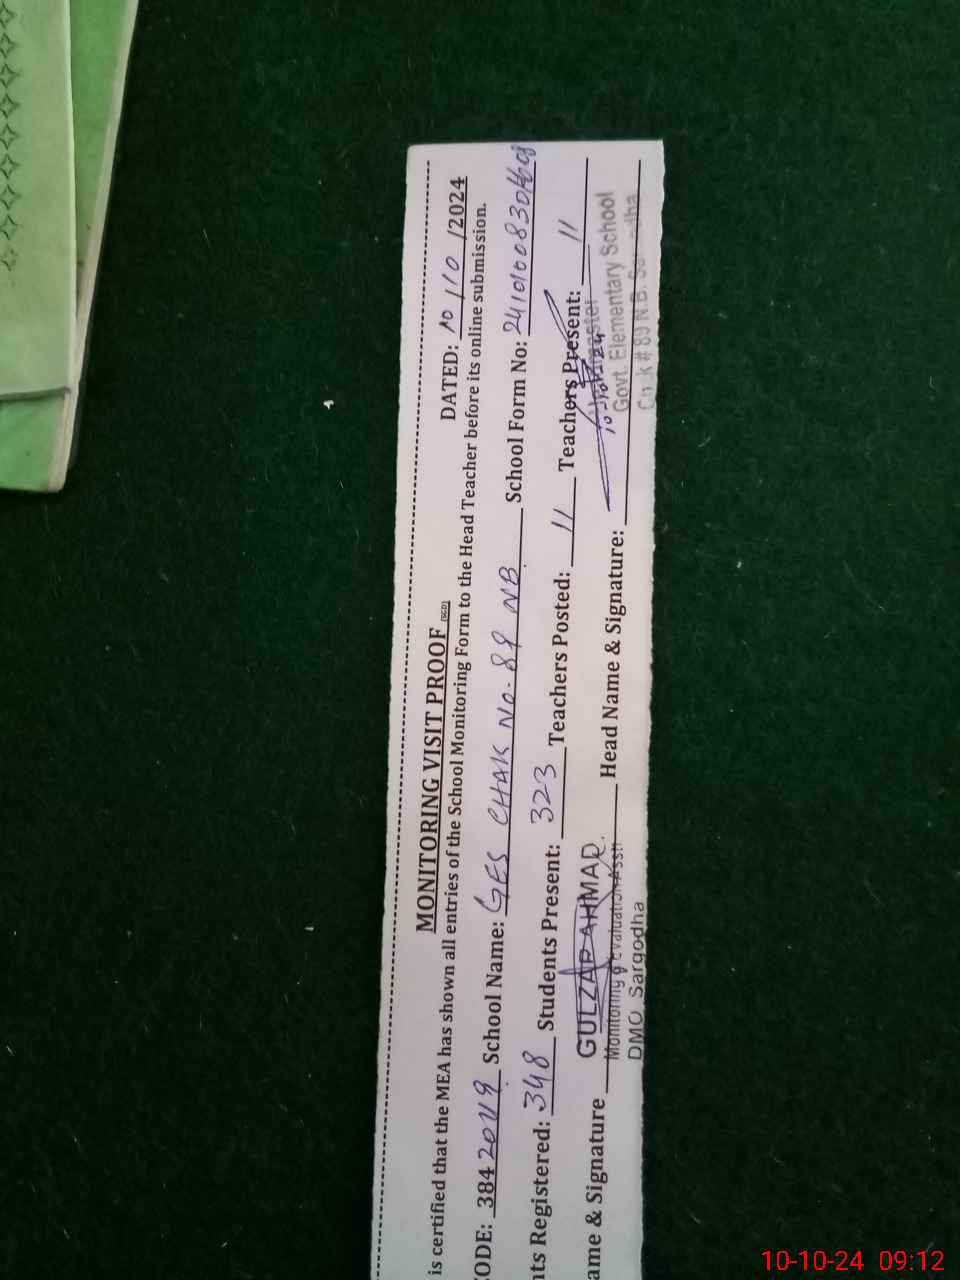 MONITORING VISIT PROOF (SGD) DATED: 10/10/2024
is certified that the MEA has shown all entries of the School Monitoring Form to the Head Teacher before its online submission.
CODE: 38420119 School Name: GES CHAK No-89 NB School Form No:
nts Registered: 348 Students Present: 323 Teachers Posted: 11 Teachers Present: 11
ame & Signature GULZAR AHMAD Head Name & Signature:
Monitoring & Evaluation Asstt
DMO Sargodha
10-10-24
Govt. Elementary School
# 89 N.B.
10-10-24 09:12